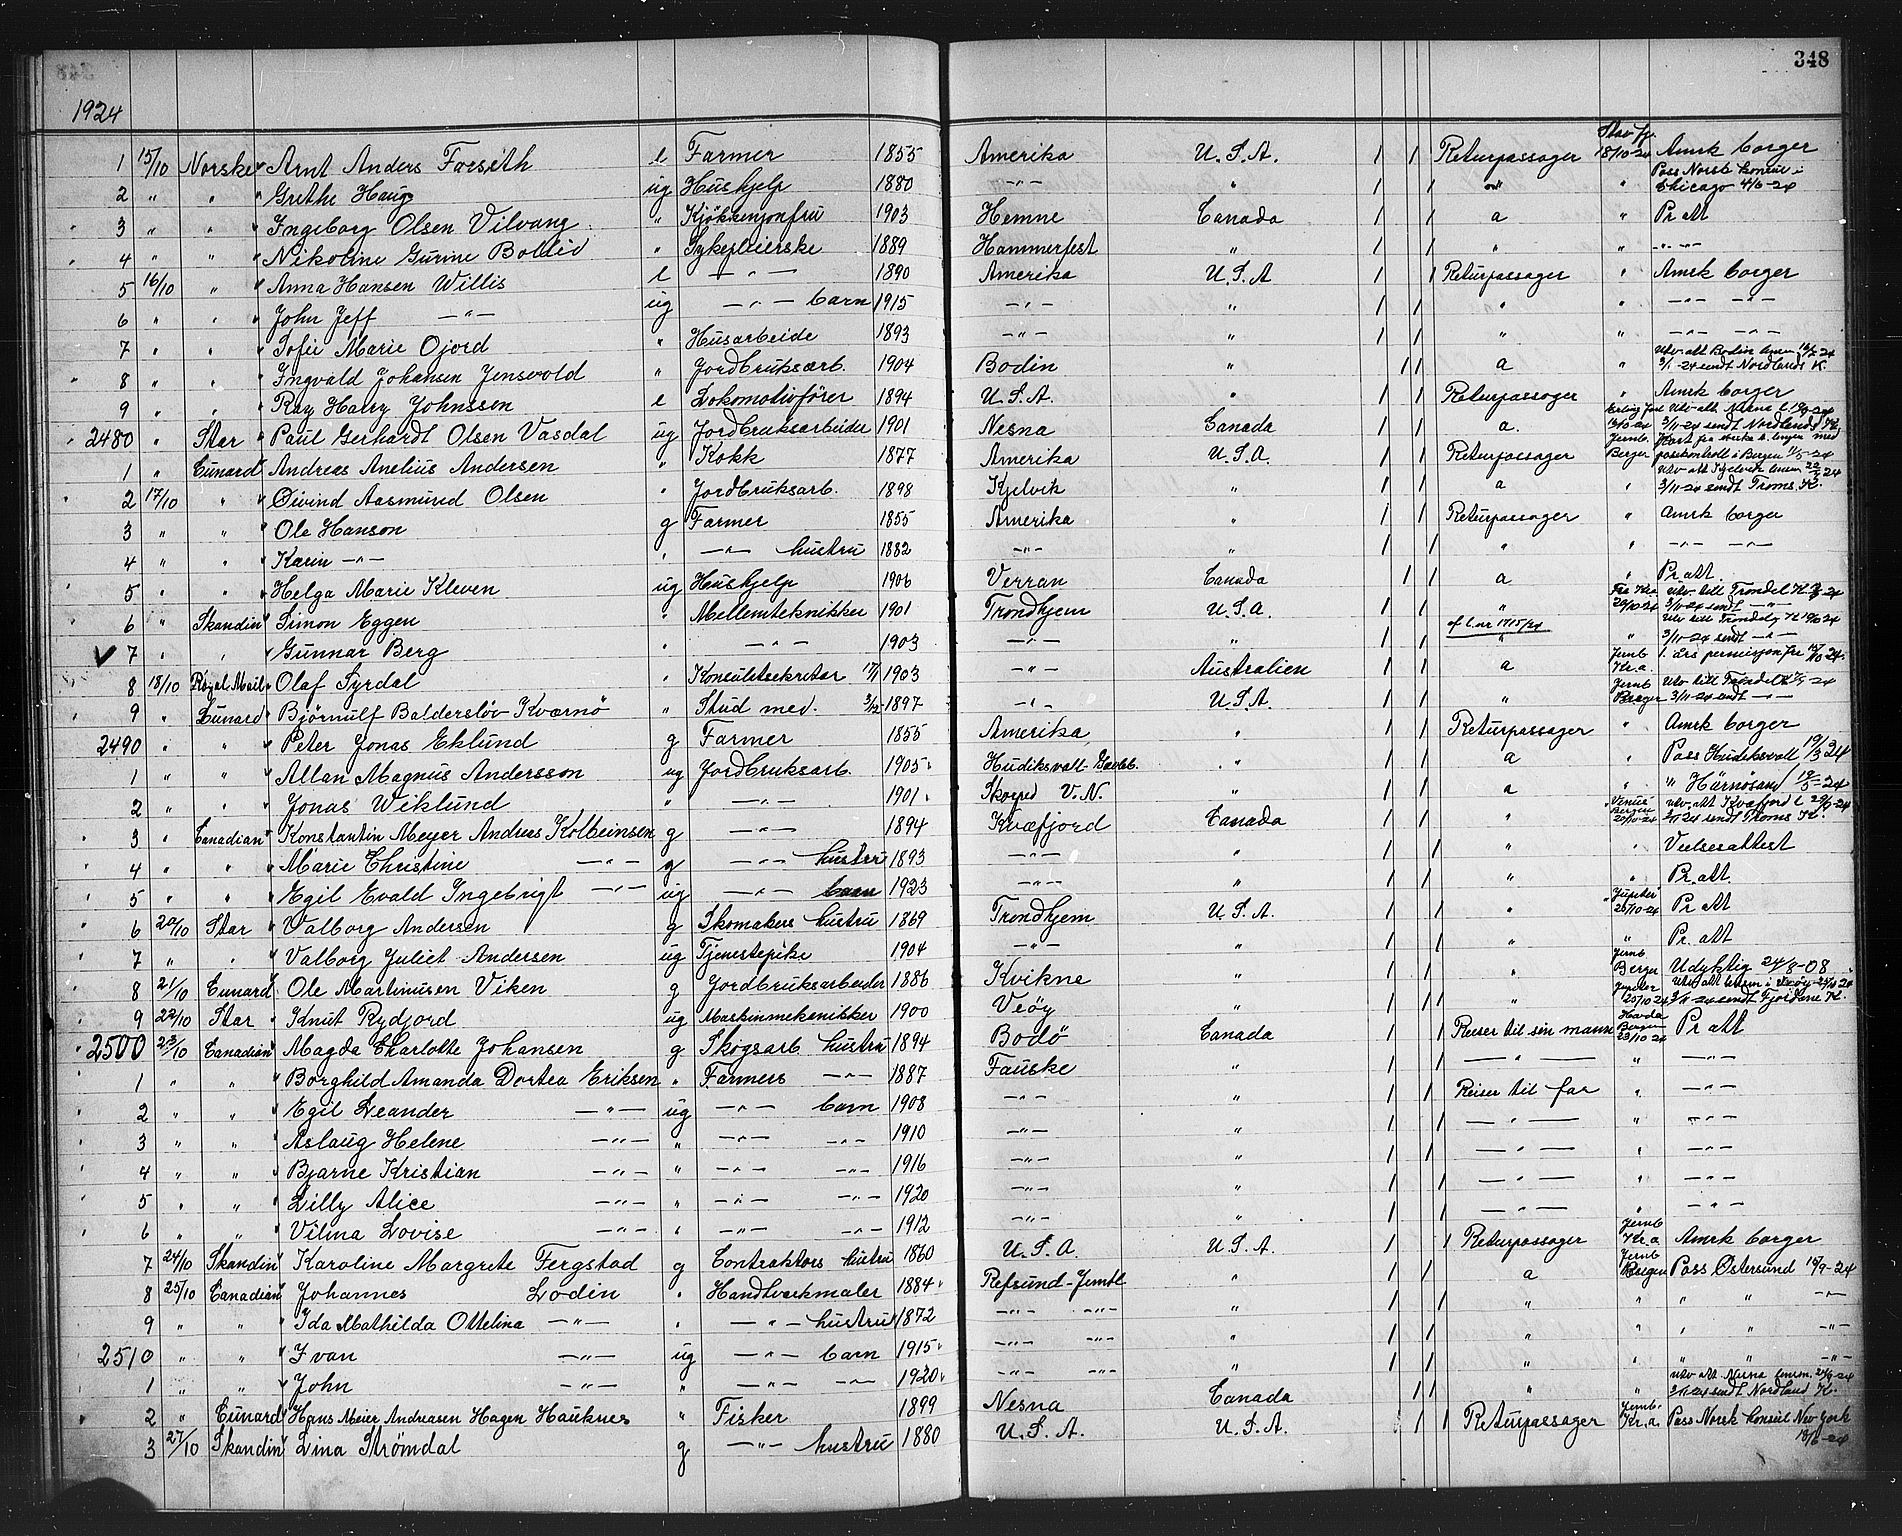 348
1924
1 15/10 Norske " Arnt Anders Forseth e Farmer 1855 Amerika U.S.A. 1 1 Returpassager Stav fj. 18/10-24 Amrk borger
2 " " " Grethe Haug ug Hushjelp 1880 -"- " 1 1 " " Pass Norsk konsul i Chicago 4/6-24
3 " " " Ingeborg Olsen Vilvang " Kjökkenjomfru 1903 Hemne Canada 1 1 a " Pr att
4 " " " Nikoline Gurine " Sykepleierske 1889 Hammerfest " 1 1 " " -"-
5 16/10 " " Anna Hansen Willis e -"- 1890 Amerika U.S.A 1 1 Returpassager " Amrk borger
6 " " " John Jeff -"- ug -"- barn 1915 -"- " 1 1 " " -"- -"-
7 " " " Sofie Marie Ojord " Husarbeide 1893 -"- " 1 1 " " -"- -"-
8 " " " Ingvald Johansen Jensvold " Jordbruksarb. 1904 Bodin " 1 1 a " Utv. att Bodin 3/11-24 sendt Nordlands K.
9 " " " Roy Harry Johnssen e Lokomotivfører 1894 U.S.A. " 1 1 Returpassager " Amrk borger
2480 " Star " Paul Gerhardt Olsen Vasdal ug Jordbruksarbeider 1901 Nesna Canada 1 1 a. Utv. att. Nesna 3/11-24 sendt Nordlands K.
1 " Cunard " Andreas Anelius Andersen " Kokk 1877 Amerika U.S.A. 1 1 Returpassager Jernb. Bergen
2 17/10 " " Øivind Aasmund Olsen " Jordbruksarb. 1898 Kjelvik " 1 1 a " Utv att Kjelvik 3/11-24 sendt Troms. K.
3 " " " Ole Hanson g Farmer 1855 Amerika " 1 1 Returpassager " Amrk borger
4 " " " Karin -"- " -"- hustru 1882 -"- " 1 1 " " -"- -"-
5 " " " Helga Marie Kleven ug Hushjelp 1906 Verran Canada 1 1 a " Pr att.
6 " Skandin " Simon Eggen " Mellemtekniker 1901 Trondhjem U.S.A. 1 1 " Fra Kra 20/10-24 Utv. till Trøndel K 3/11-24 sendt -"-
7 " " " Gunnar Berg " -"- 1903 -"- " 1 1 cf l.nr 1715/24 " Utv till Trøndelg K 3/11-24 sendt -"-
8 18/10 Royal Mail " Olaf Syrdal " Konsulatsekretær 17/11 1903 -"- Australien 1 1 a Jernb Kr.a 1. års permisjon
9 " Cunard " Bjørnulf Baldersløv Kværnø " Stud med. 3/12 1897 -"- U.S.A. 1 1 " Jernb Bergen Utv till Trøndel K 3/11-24 sendt -"-
2490 " " " Peter Jonas Eklund g Farmer 1855 Amerika " 1 1 Returpassager " Amrk borger
1 " " " Allan Magnus Andersson ug Jordbruksarb. 1905 Hudiksvall " 1 1 a " Pass Hudiksvall 19/3 24
2 " " " Jonas Wiklund " -"- 1901 Skorped V.N. " 1 1 a " " Härnösand 19/5-24
3 " Canadian " Konstantin Meyer Andreas Kolbeinsen g -"- 1894 Kvæfjord Canada 1 1 " "Venus" Bergen Utv. att Kvæfjord 3/11 24 sendt Troms K.
4 " " " Marie Christine -"- g -"- hustru 1893 -"- " 1 1 " " Vielsesattest
5 " " " Egil Evald Ingebrigt -"- ug -"- barn 1923 -"- " 1 1 " " Pr. att.
6 20/10 Star " Valborg Andersen g Skomakers hustru 1869 Trondhjem U.S.A. 1 1 " "Jupiter" 20/10-24 Pr att
7 " " " Valborg Juliet Andersen ug Tjenestepike 1904 -"- " 1 1 " " Pr. att
8 21/10 Cunard " Ole Martinusen Viken g Jordbruksarbeider 1886 Kvikne " 1 1 " Jernb Bergen Udyktig 24/8-08
9 22/10 Star " Knut Rydjord ug Maskinmekanikker 1900 Veöy " 1 1 " Jupiter 3/11-24 sendt Fjordane K.
2500 23/10 Canadian " Magda Charlotte Johansen g Skogsarb hustru 1894 Bodö Canada 1 1 Reiser til sin mann Bergen 23/10 24 Pr att
1 " " " Borghild Amanda Dortea Eriksen " Farmers -"- 1887 Fauske " 1 1 -"- " -"-
2 " " " Egil Leander -"- ug -"- barn 1908 -"- " 1 1 Reiser til far " -"-
3 " " " Aslaug Helene -"- " -"- -"- 1910 -"- " 1 1 -"- " -"-
4 " " " Bjarne Kristian -"- " -"- -"- 1916 -"- " 1 1 -"- " -"-
5 " " " Lilly Alice -"- " -"- -"- 1920 -"- " 1 1 -"- " -"-
6 " " " Vilma Lovise -"- " -"- -"- 1912 -"- " 1 1 -"- " -"-
7 24/10 Skandin " Karoline Margrete Fergstad g Contraktørs hustru 1860 U.S.A. U.S.A. 1 1 Returpassager Jernb Kr.a Amrk borger
8 25/10 Canadian " Johannes Lodin " Handtverkmaler 1884 Refsund-Jemtl " 1 1 a Jernb Bergen Pass Østersund 10/9-24
9 " " " Ida Mathilda Ottelina -"- " -"- hustru 1872 -"- -"- " 1 1 " " " " -"-
2510 " " " Ivan -"- ug -"- barn 1915 -"- -"- " 1 1 " " " " -"-
1 " " " John -"- " -"- -"- 1920 -"- -"- " 1 1 " " " " -"-
2 " Cunard " Hans Meier Andreasen Hagen Hauknes " Fisker 1899 Nesna Canada 1 1 " " Utv. att. Nesna 3/11-24 sendt Nordland K.
3 27/10 Skandin " Lina Strømdal g -"- hustru 1880 U.S.A. U.S.A. 1 1 Returpassager Jernb. Kr.a. Pass Norsk konsul New York 18/6-24